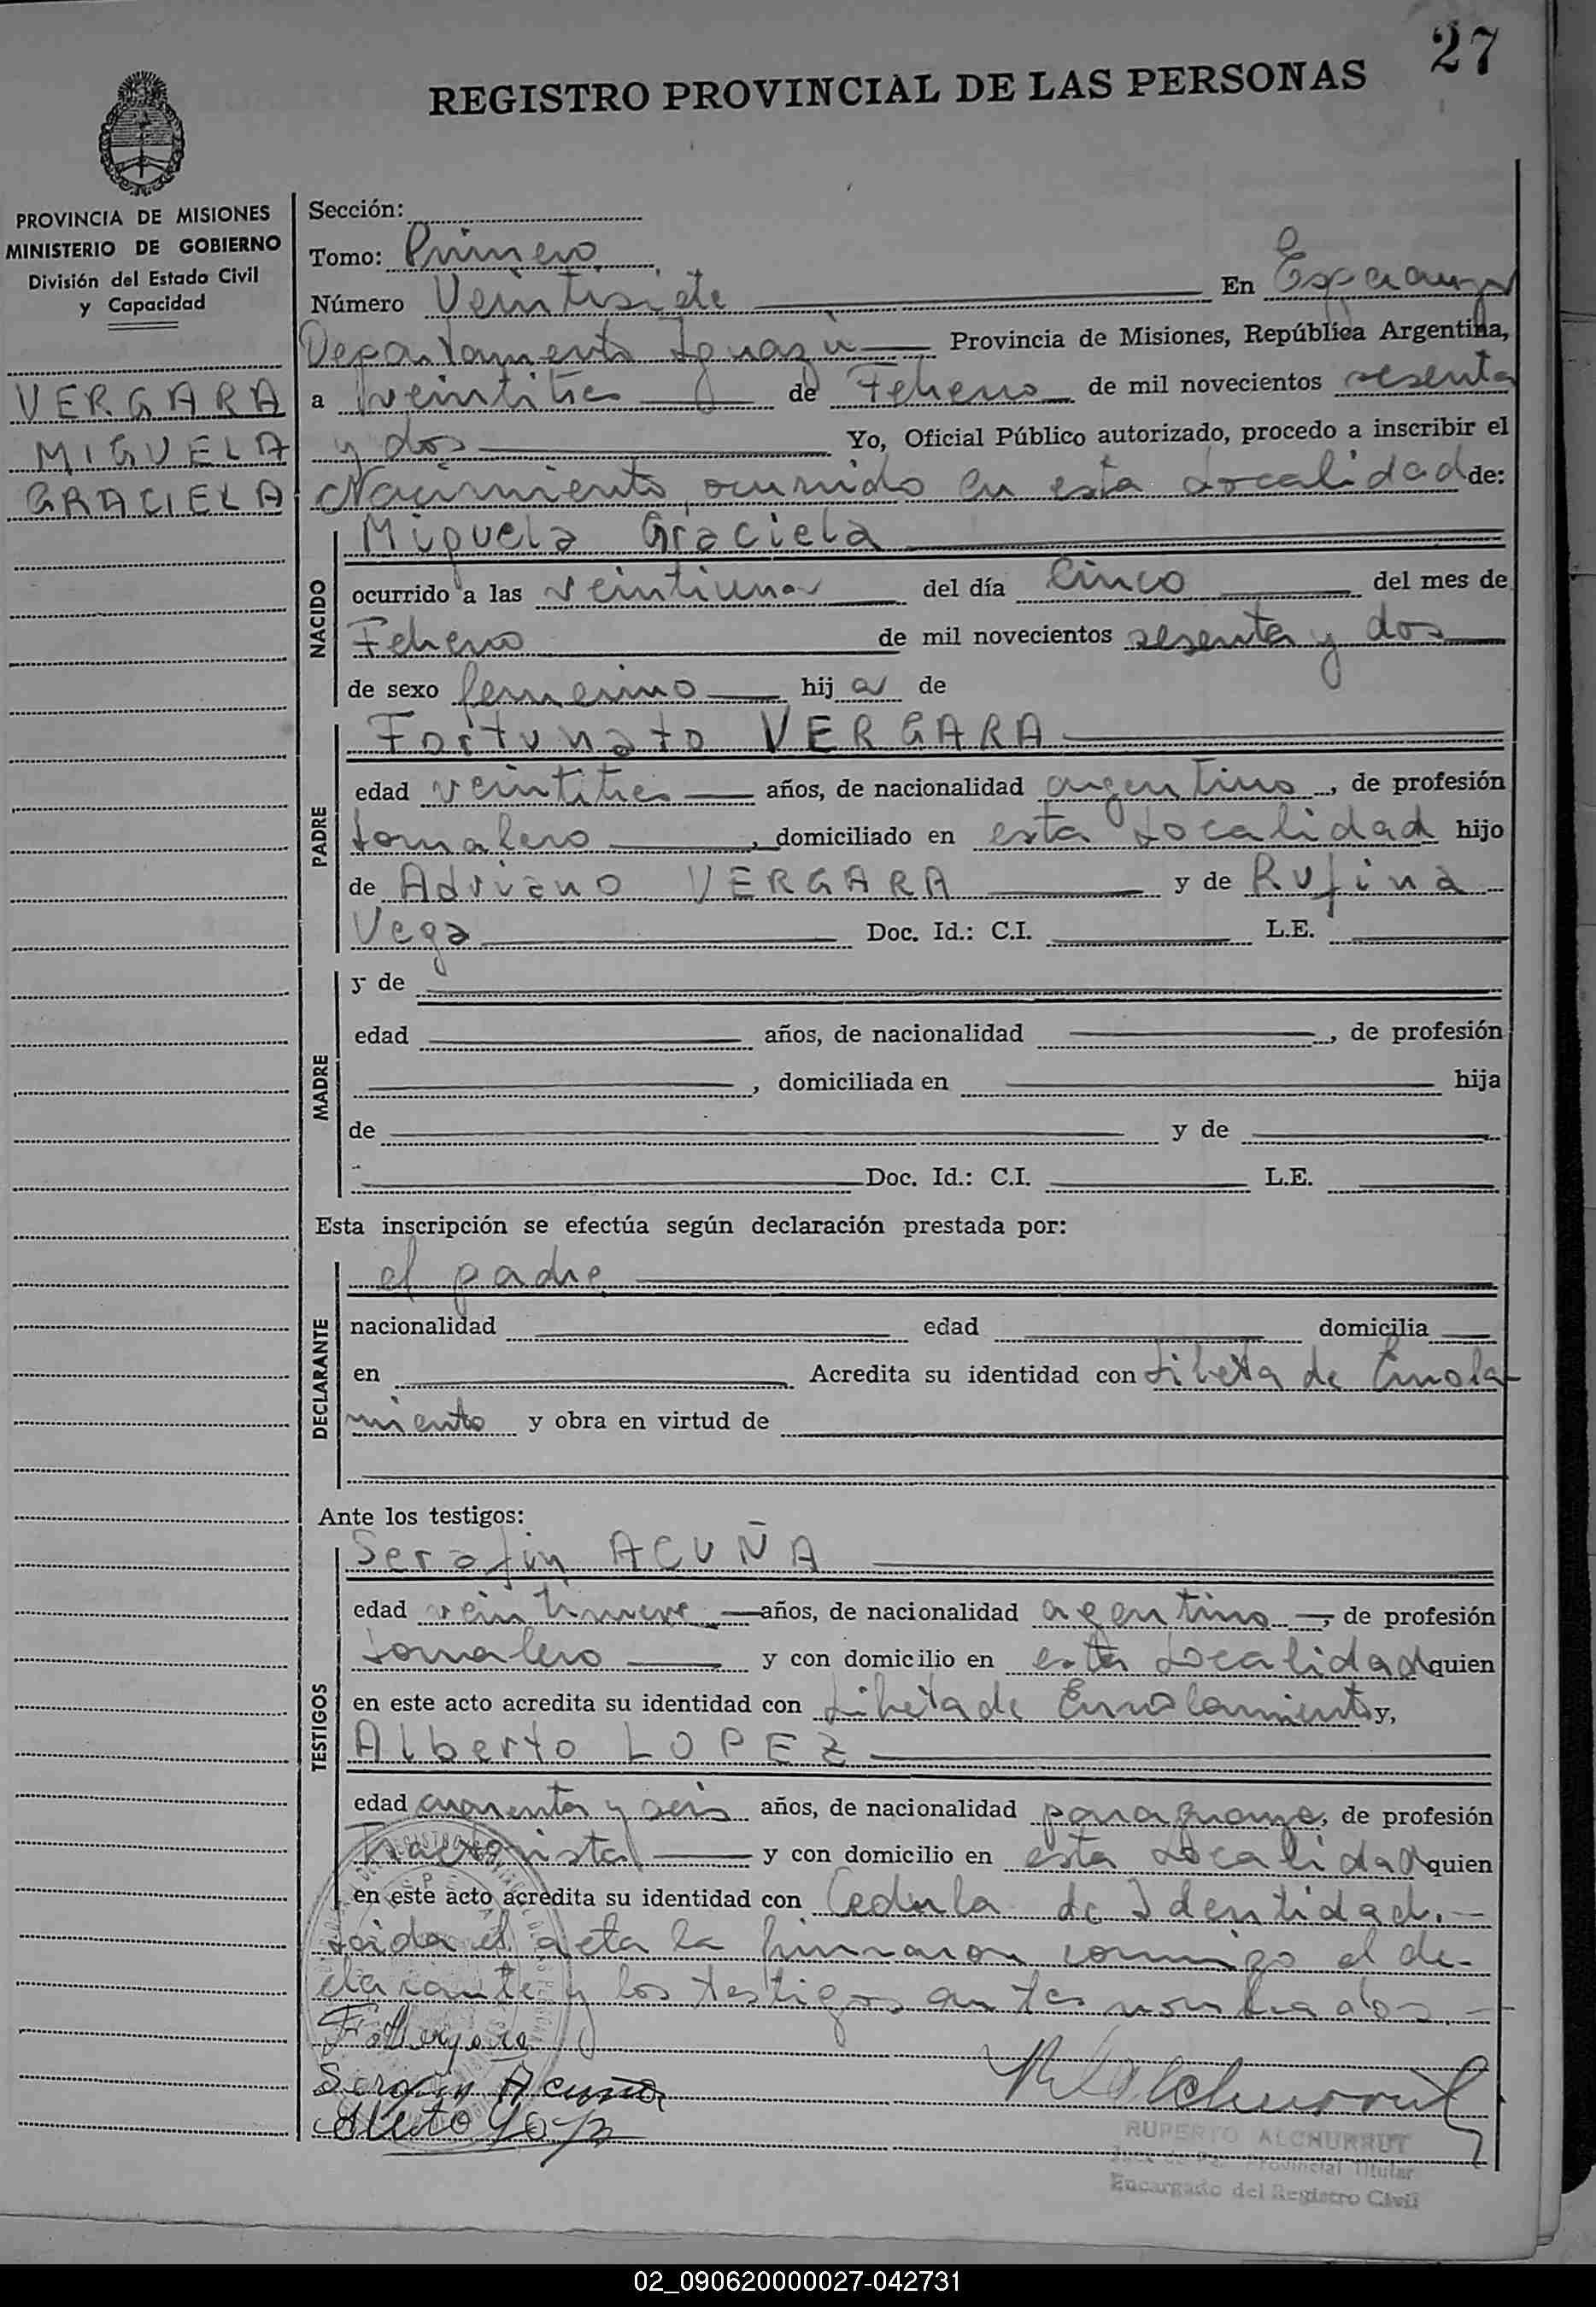 27
REGISTRO PROVINCIAL DE LAS PERSONAS
PROVINCIA DE MISIONES
MINISTERIO DE GOBIERNO
División del Estado Civil
y Capacidad
VERGARA
MIGUELA
GRACIELA
Sección:
Tomo: Primero
Número Veintisiete En Esperanza
Departamento Iguazú Provincia de Misiones, República Argentina,
a veintitres de Febrero de mil novecientos sesenta
y dos Yo, Oficial Público autorizado, procedo a inscribir el
Nacimiento, ocurrido en esta Localidad de:
NACIDO
Miguela Graciela
ocurrido a las veintiuna del día Cinco del mes de
Febrero de mil novecientos sesenta y dos
de sexo femenino hij a de
PADRE
Fortunato VERGARA
edad veintitres años, de nacionalidad argentino, de profesión
Jornalero, domiciliado en esta Localidad hijo
de Adriano VERGARA y de Rufina
Vega Doc. Id.: C.I. L.E.
MADRE
y de
edad años, de nacionalidad , de profesión
, domiciliada en hija
de y de
Doc. Id.: C.I. L.E.
Esta inscripción se efectúa según declaración prestada por:
DECLARANTE
el padre
nacionalidad edad domicilia
en Acredita su identidad con Libreta de Enrola
miento y obra en virtud de
Ante los testigos:
TESTIGOS
Serafin ACUÑA
edad veintinueve años, de nacionalidad argentino, de profesión
Jornalero y con domicilio en esta Localidad quien
en este acto acredita su identidad con Libreta de Enrolamiento y,
Alberto LOPEZ
edad cuarenta y seis años, de nacionalidad paraguayo, de profesión
Tractorista y con domicilio en esta Localidad quien
en este acto acredita su identidad con Cedula de Identidad.-
Leida el acta la firmaron conmigo el de-
clarante y los testigos antes nombrados.-
F Vergara
Serafin Acuña
RUPERTO ALCHURRUT
Juez de Paz Provincial Titular
Encargado del Registro Civil
02_090620000027-042731